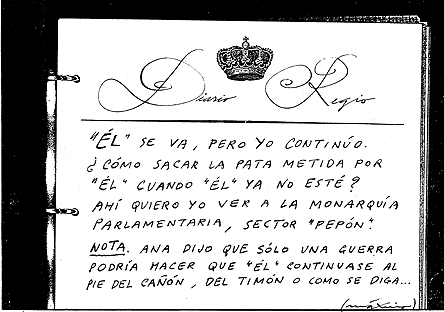 Diario Regio
"ÉL" SE VA, PERO YO CONTINÚO.
¿CÓMO SACAR LA PATA METIDA POR
"ÉL" CUANDO "ÉL" YA NO ESTÉ?
AHÍ QUIERO YO VER A LA MONARQUÍA
PARLAMENTARIA, SECTOR "PEPÓN".
NOTA. ANA DIJO QUE SÓLO UNA GUERRA
PODRÍA HACER QUE "ÉL" CONTINUASE AL
PIE DEL CAÑÓN, DEL TIMÓN O COMO SE DIGA...
(máximo)